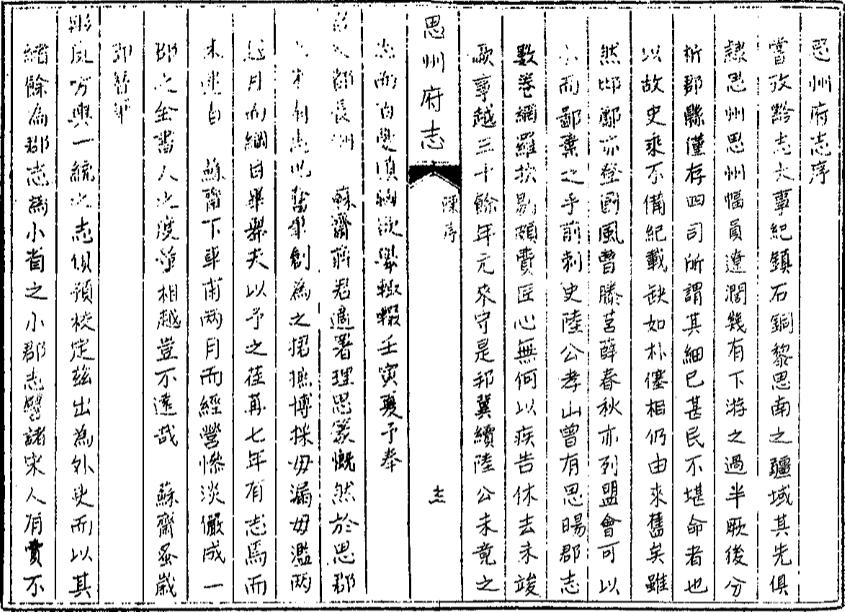 思州府志序
嘗攷黔志大事紀鎮石銅黎思南之疆域其先俱
隸思州思州幅員遼濶幾有下游之過半厥後分
析郡縣僅存四司所謂其細已甚民不堪命者也
以故史乘不備紀載缺如朴僿相仍由來舊矣雖
然邶鄘亦登國風曹滕莒薛春秋亦列盟會可以
小而鄙棄之乎前刺史陸公孝山曾有思暘郡志
數卷網羅抉剔頗費匠心無何以疾告休去未竣
厥事越三十餘年元來守是邦冀續陸公未竟之
思州府志
陳序
志而百興須物欲舉輒輟壬寅夏予奉
蘇齋蔣君適署理思篆慨然於思郡
創為之捃摭博採毋漏毋濫兩
越月而綱目畢舉夫以予之荏苒七年有志焉而
未逮自 蘇齋下車甫兩月而經營慘淡儼成一
郡之全書人之度量相越豈不遠哉 蘇齋蚤歲
即替筆
彤廷方輿一統之志俱預校定玆出為外吏而以其
緒餘為郡志為小省之小郡志譬諸宋人有賣不